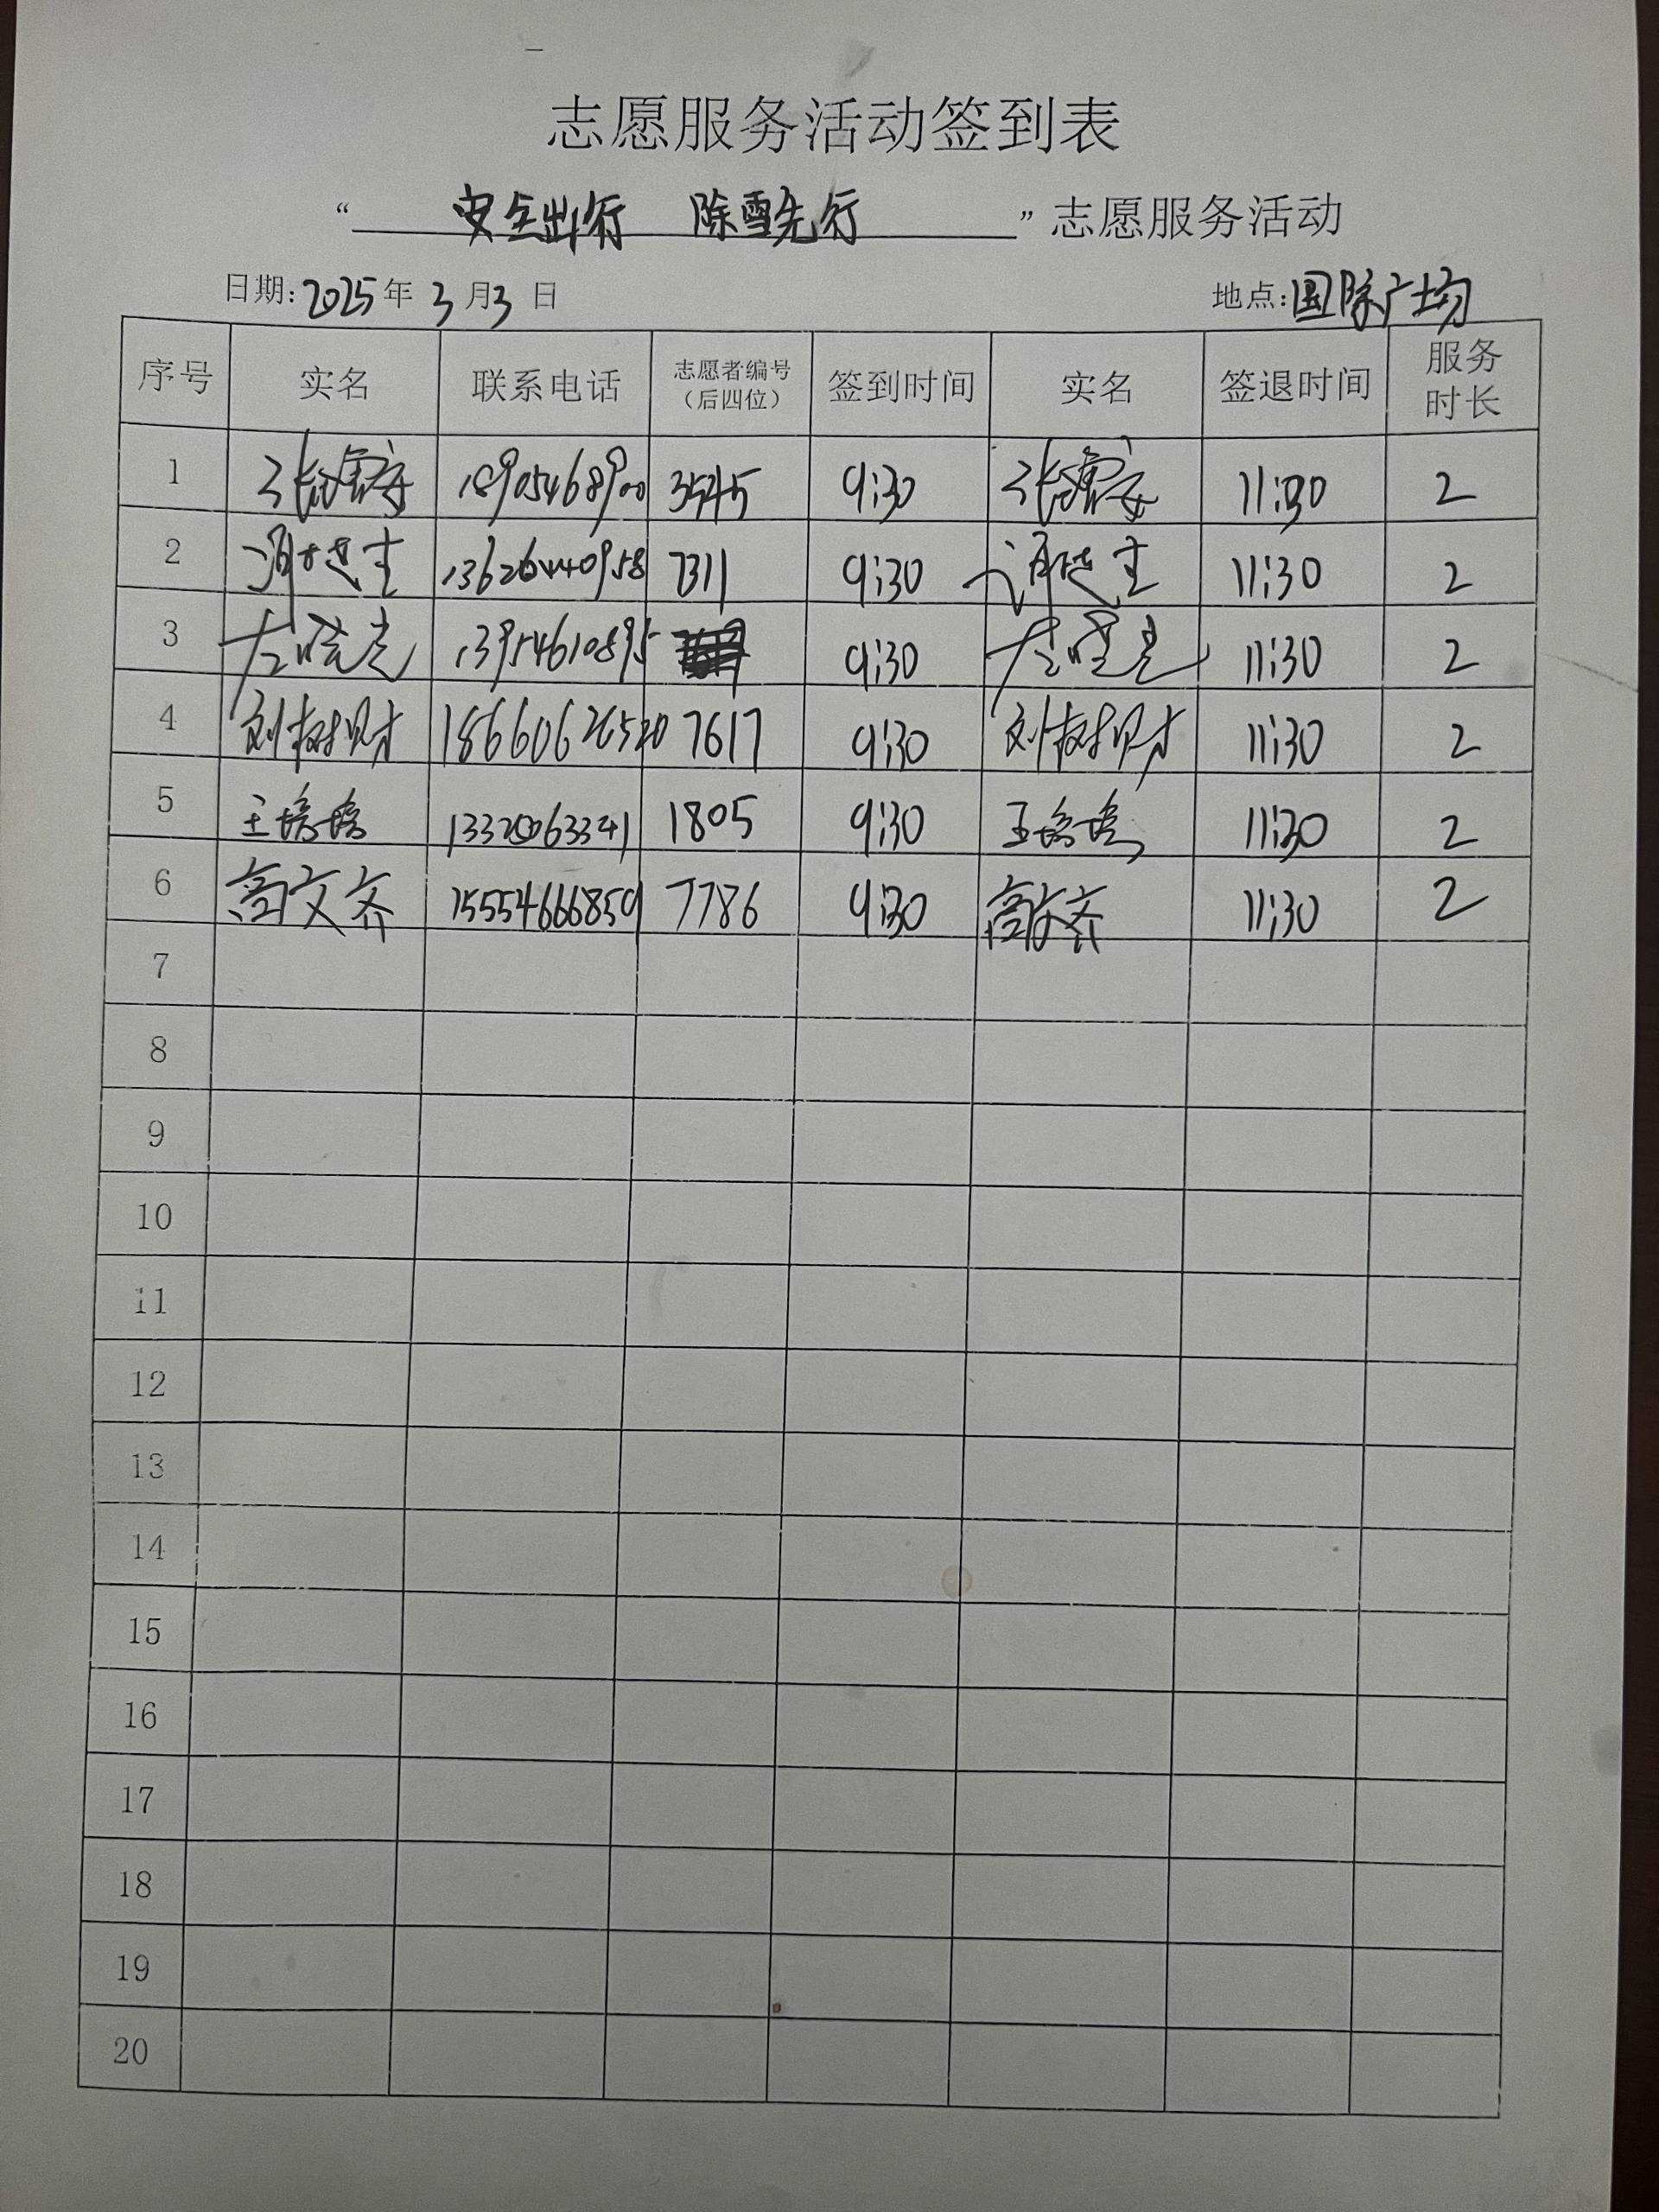 志愿服务活动签到表
“安全出行 除雪先行”志愿服务活动
日期:2025年3月3日 地点:国际广场
序号 实名 联系电话 志愿者编号（后四位） 签到时间 实名 签退时间 服务时长
1 18905468900 3545 9:30 11:30 2
2 13626440958 7311 9:30 11:30 2
3 13954610895 9:30 11:30 2
4 刘树财 18660626520 7617 9:30 刘树财 11:30 2
5 王培培 1805 9:30 王培培 11:30 2
6 高文齐 15554666859 7786 9:30 高文齐 11:30 2
7
8
9
10
11
12
13
14
15
16
17
18
19
20